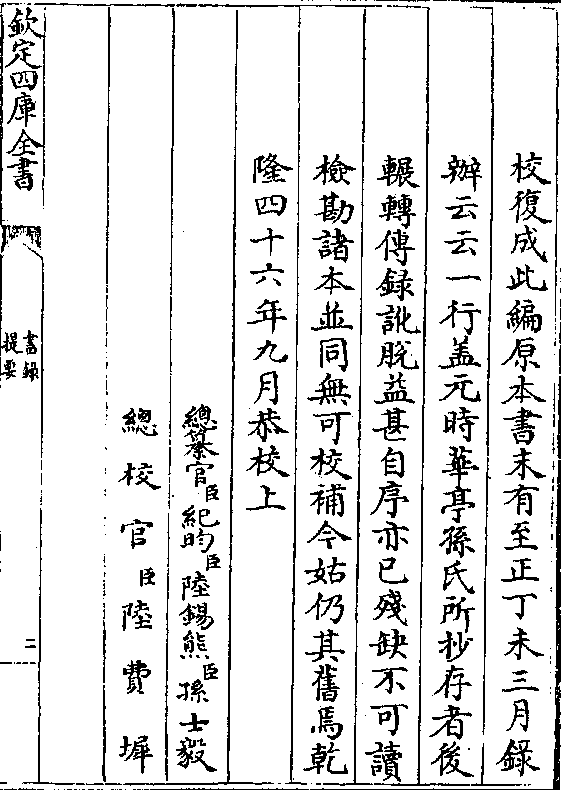 校復成此編原本書末有至正丁未三月錄
辦云云一行盖元時華亭孫氏所抄存者後
輾轉傳録訛脱益甚自序亦已殘缺不可讀
檢勘諸本並同無可校補今姑仍其舊焉乾
隆四十六年九月恭校上
總纂官臣紀昀臣陸錫熊臣孫士毅
總校官臣陸費墀
欽定四庫全書
書録
提要
二